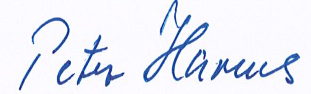 Peter Harms